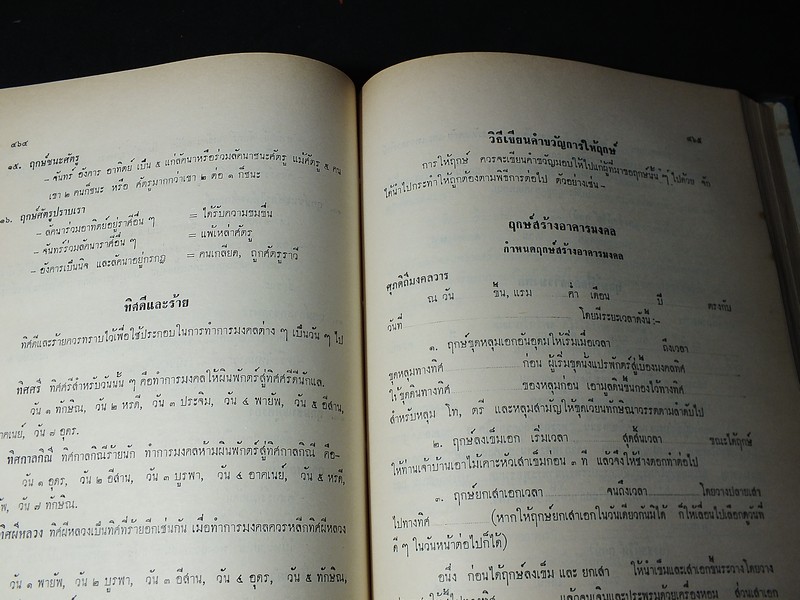 ๔๖๔
๑๕. ฤกษ์ชนะศัตรู
– จันทร์ อังคาร อาทิตย์ เป็น ๕ แก่ลัคนาหรือร่วมลัคนาชนะศัตรู แม้ศัตรู ๕ คน
เขา ๒ คนก็ชนะ หรือ ศัตรูมากกว่าเขา ๒ ต่อ ๑ ก็ชนะ
๑๖. ฤกษ์ศัตรูปราบเรา
– ลัคนาร่วมอาทิตย์อยู่ราศีอื่น ๆ = ได้รับความชมชื่น
– จันทร์ร่วมลัคนาราศีอื่น ๆ = แพ้เหล่าศัตรู
– อังคารเป็นนิจ และลัคนาอยู่กรกฏ = คนเกลียด, ถูกศัตรูราวี
ทิศดีและร้าย
ทิศดีและร้ายควรทราบไว้เพื่อใช้ประกอบในการทำการมงคลต่าง ๆ เป็นวัน ๆ ไป
ทิศศรี ทิศศรีสำหรับวันนั้น ๆ คือทำการมงคลให้ผินพักตร์สู่ทิศศรีดีนักแล.
วัน ๑ ทักษิณ, วัน ๒ หรดี, วัน ๓ ประจิม, วัน ๔ พายัพ, วัน ๕ อีสาน,
าคเนย์, วัน ๗ อุดร.
ทิศกาลกิณี ทิศกาลกิณีร้ายนัก ทำการมงคลห้ามผินพักตร์สู่ทิศกาลกิณี คือ-
วัน ๑ อุดร, วัน ๒ อีสาน, วัน ๓ บูรพา, วัน ๔ อาคเนย์, วัน ๕ หรดี,
พ, วัน ๗ ทักษิณ.
ทิศผีหลวง ทิศผีหลวงเป็นทิศที่ร้ายอีกเช่นกัน เมื่อทำการมงคลควรหลีกทิศผีหลวง
วัน ๑ พายัพ, วัน ๒ บูรพา, วัน ๓ อีสาน, วัน ๔ อุดร, วัน ๕ ทักษิณ,
๔๖๕
วิธีเขียนคำขวัญการให้ฤกษ์
การให้ฤกษ์ ควรจะเขียนคำขวัญมอบให้ไปแก่ผู้ที่มาขอฤกษ์นั้น ๆ ไปด้วย จัก
ได้นำไปกระทำให้ถูกต้องตามพิธีการต่อไป ตัวอย่างเช่น –
ฤกษ์สร้างอาคารมงคล
กำหนดฤกษ์สร้างอาคารมงคล
ศุภดิถีมงคลวาร
ณ วัน ขึ้น, แรม ค่ำ เดือน ปี ตรงกับ
วันที่ โดยมีระยะเวลาดังนี้ :–
๑. ฤกษ์ขุดหลุมเอกอันอุดมให้เริ่มเมื่อเวลา ถึงเวลา
ขุดหลุมทางทิศ ก่อน ผู้เริ่มขุดนั้งแปรพักตร์สู่เบื้องมงคลทิศ
ให้ขุดดินทางทิศ ของหลุมก่อน เอามูลดินขึ้นกองไว้ทางทิศ
สำหรับหลุม โท, ตรี และหลุมสามัญให้ขุดเวียนทักษิณาวรรตตามลำดับไป
๒. ฤกษ์ลงเข็มเอก เริ่มเวลา สุดสิ้นเวลา ขณะได้ฤกษ์
ให้ท่านเจ้าบ้านเอาไม้เคาะหัวเสาเข็มก่อน ๓ ที แล้วจึงให้ช่างตอกทำต่อไป
๓. ฤกษ์ยกเสาเอกเวลา จนถึงเวลา โดยวางปลายเสา
ไปทางทิศ (หากให้ฤกษ์ยกเสาเอกในวันเดียวกันมิได้ ก็ให้เลื่อนไปเลือกดูวันที่
ดี ๆ ในวันหน้าต่อไปก็ได้)
อนึ่ง ก่อนได้ฤกษ์ลงเข็ม และ ยกเสา ให้นำเข็มและเสาเอกขึ้นระวางโดยวาง
แล้วเจิมและประพรมด้วยเครื่องหอม ส่วนเสาเอก